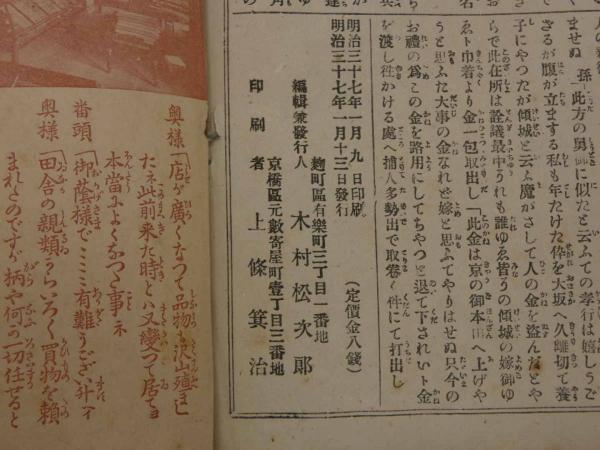 ませぬ 孫「此方の舅御に似たと云ふての孝行は嬉しうご
ざるが腹が立まする私も年だけた伜を大坂へ久離切て養
子にやつたが傾城と云ふ魔がさして人の金を盗んだとや
らで此在所は詮議最中うれも誰ゆゑ皆ろの傾城の嫁御ゆ
ゑト巾着より金一包取出し「此金は京の御本山へ上げや
うと思ふた大事の金なれど嫁と思ふてやりはせぬ只今の
お禮の爲この金を路用にしてちやつと退て下されいト金
を渡し往かける處へ捕人多勢出で取巻く件にて打出し
明治三十七年一月九日印刷
明治三十七年一月十三日發行
(定價金八錢)
麴町區有樂町三丁目一番地
編輯兼發行人 木村松次郎
京橋區元數寄屋町壹丁目三番地
印刷者 上條箕治
奥様「店が廣くなつて品物も沢山殖まし
たネ此前来た時とハ又變つて居て
本當によくなつた事ネ
番頭「御蔭様でミミミ有難うございます
奥様「田舎の親類からいろく買物を頼
まれたのですが柄や何か一切任せると